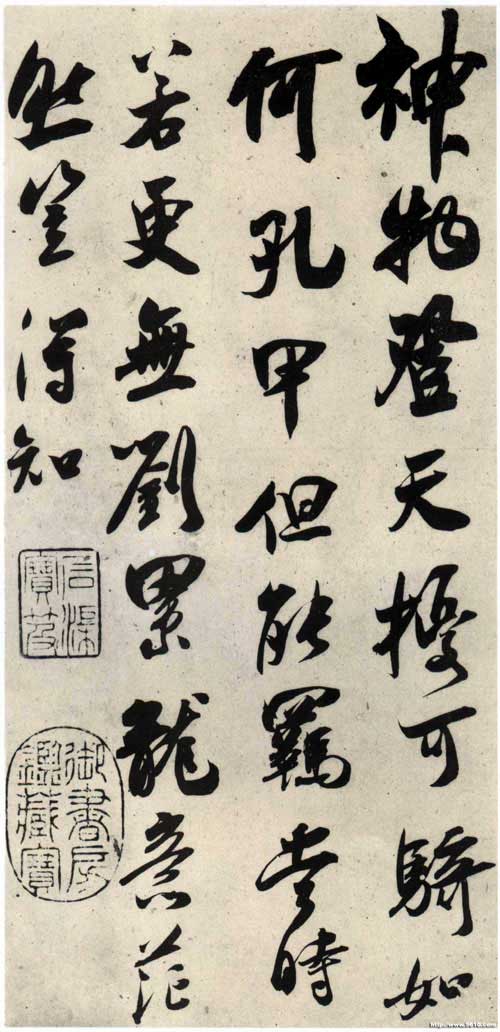 神物登天擾可騎如
何孔甲但能羈當時
若更無劉累龍意茫
然豈得知
石渠
寶笈
御書房
鑑藏寶
http://www.9610.com